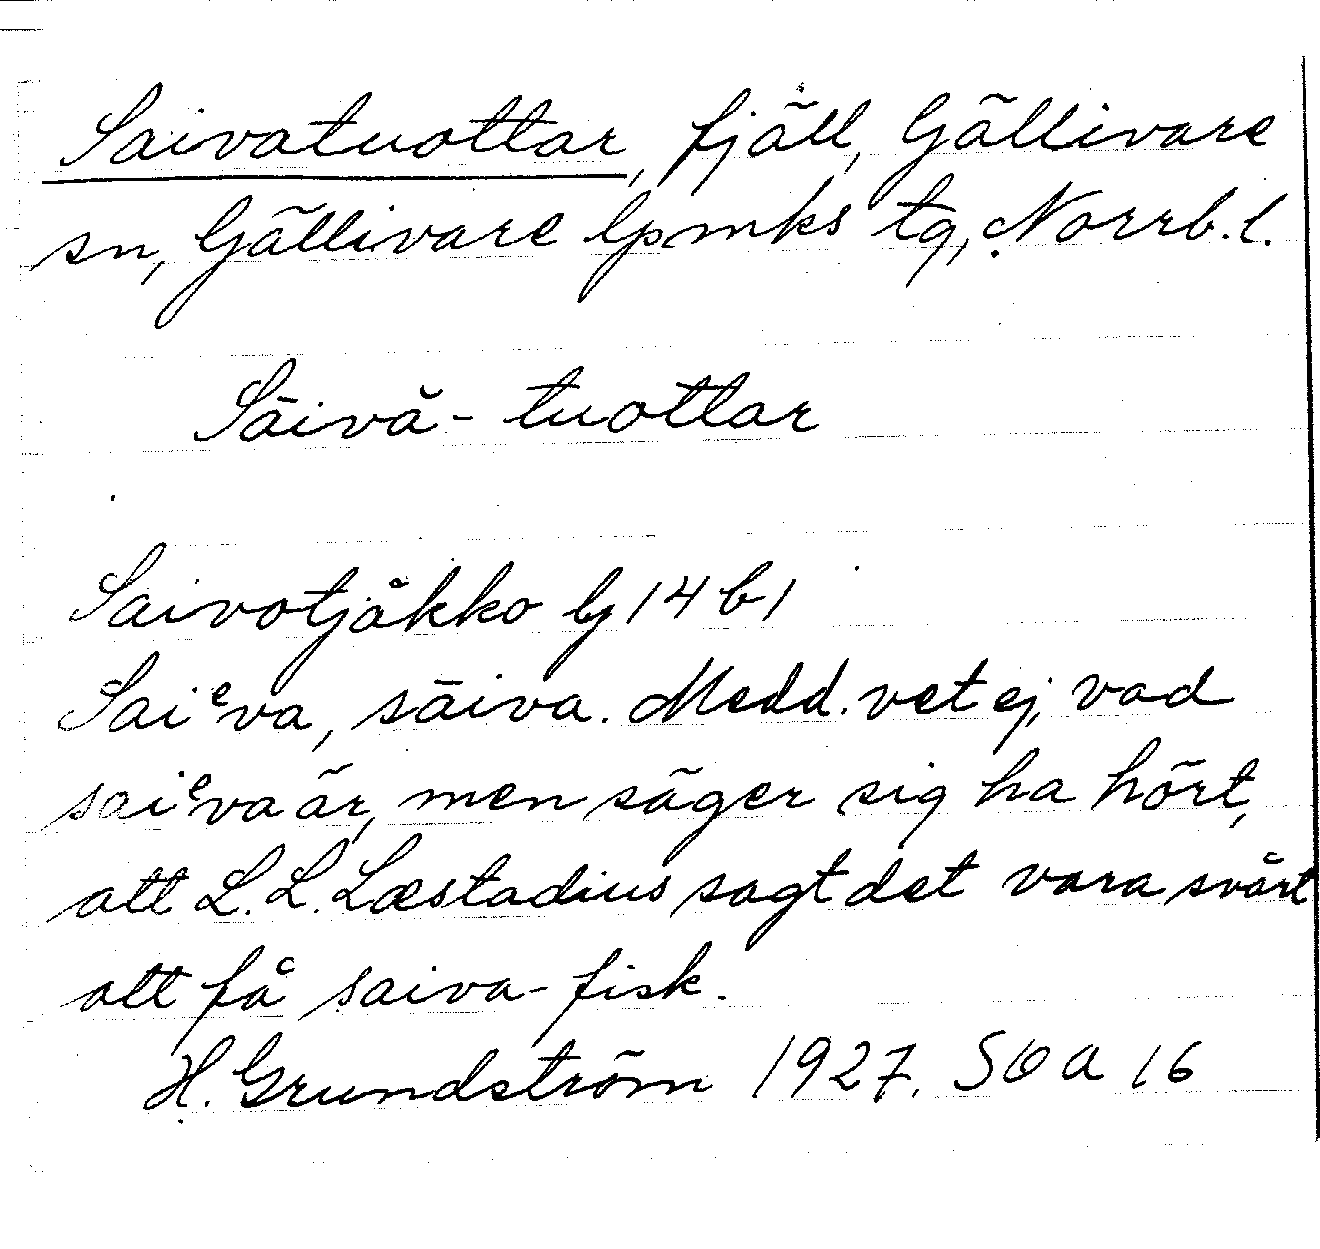 Saivatuottar, fjäll, Gällivare
sn, Gällivare lpmks tg, Norrb. l.
Sāivă- tuottar
Saivotjåkko bj 14 b1
Saiᵉva, sāiva. Medd. vet ej, vad
saiᵉva är, men säger sig ha hört,
att L. L. Læstadius sagt det vara svårt
att få saiva-fisk.
H. Grundström 1927. SOA 16